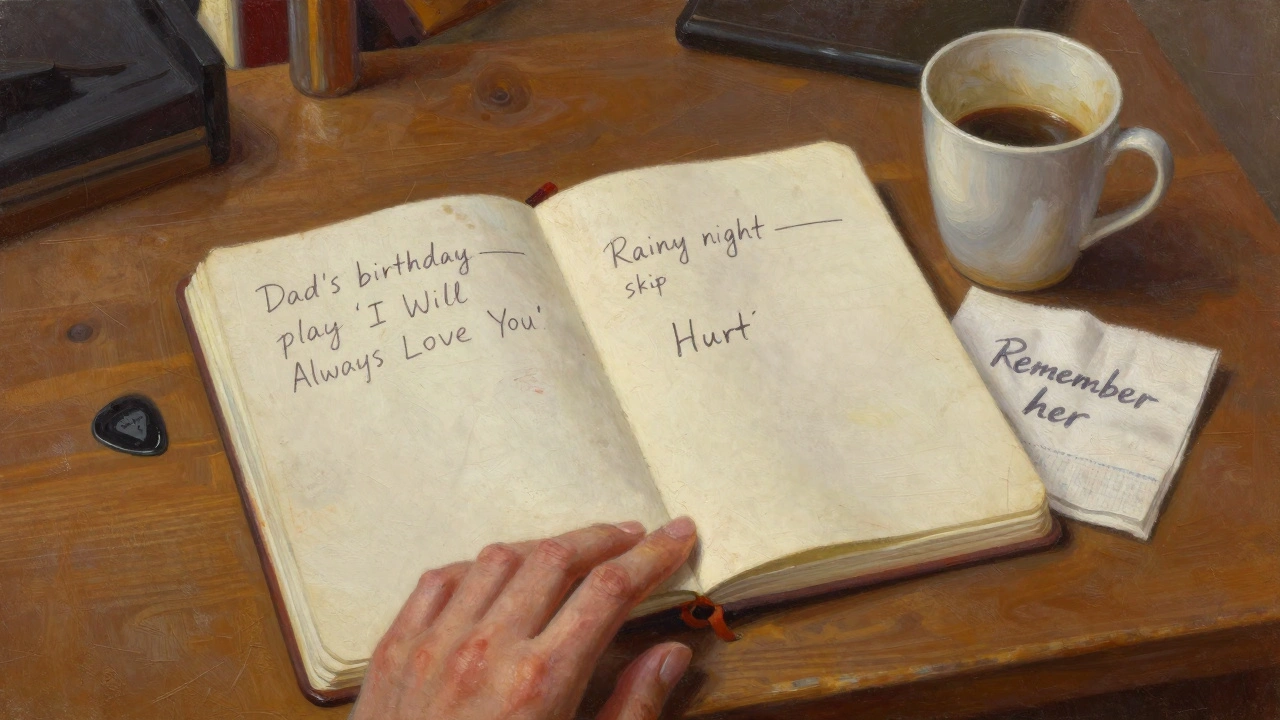 Dad's birthday —
play 'I Will
Always Love You'
Rainy night —
skip
Hurt'
Remember
her